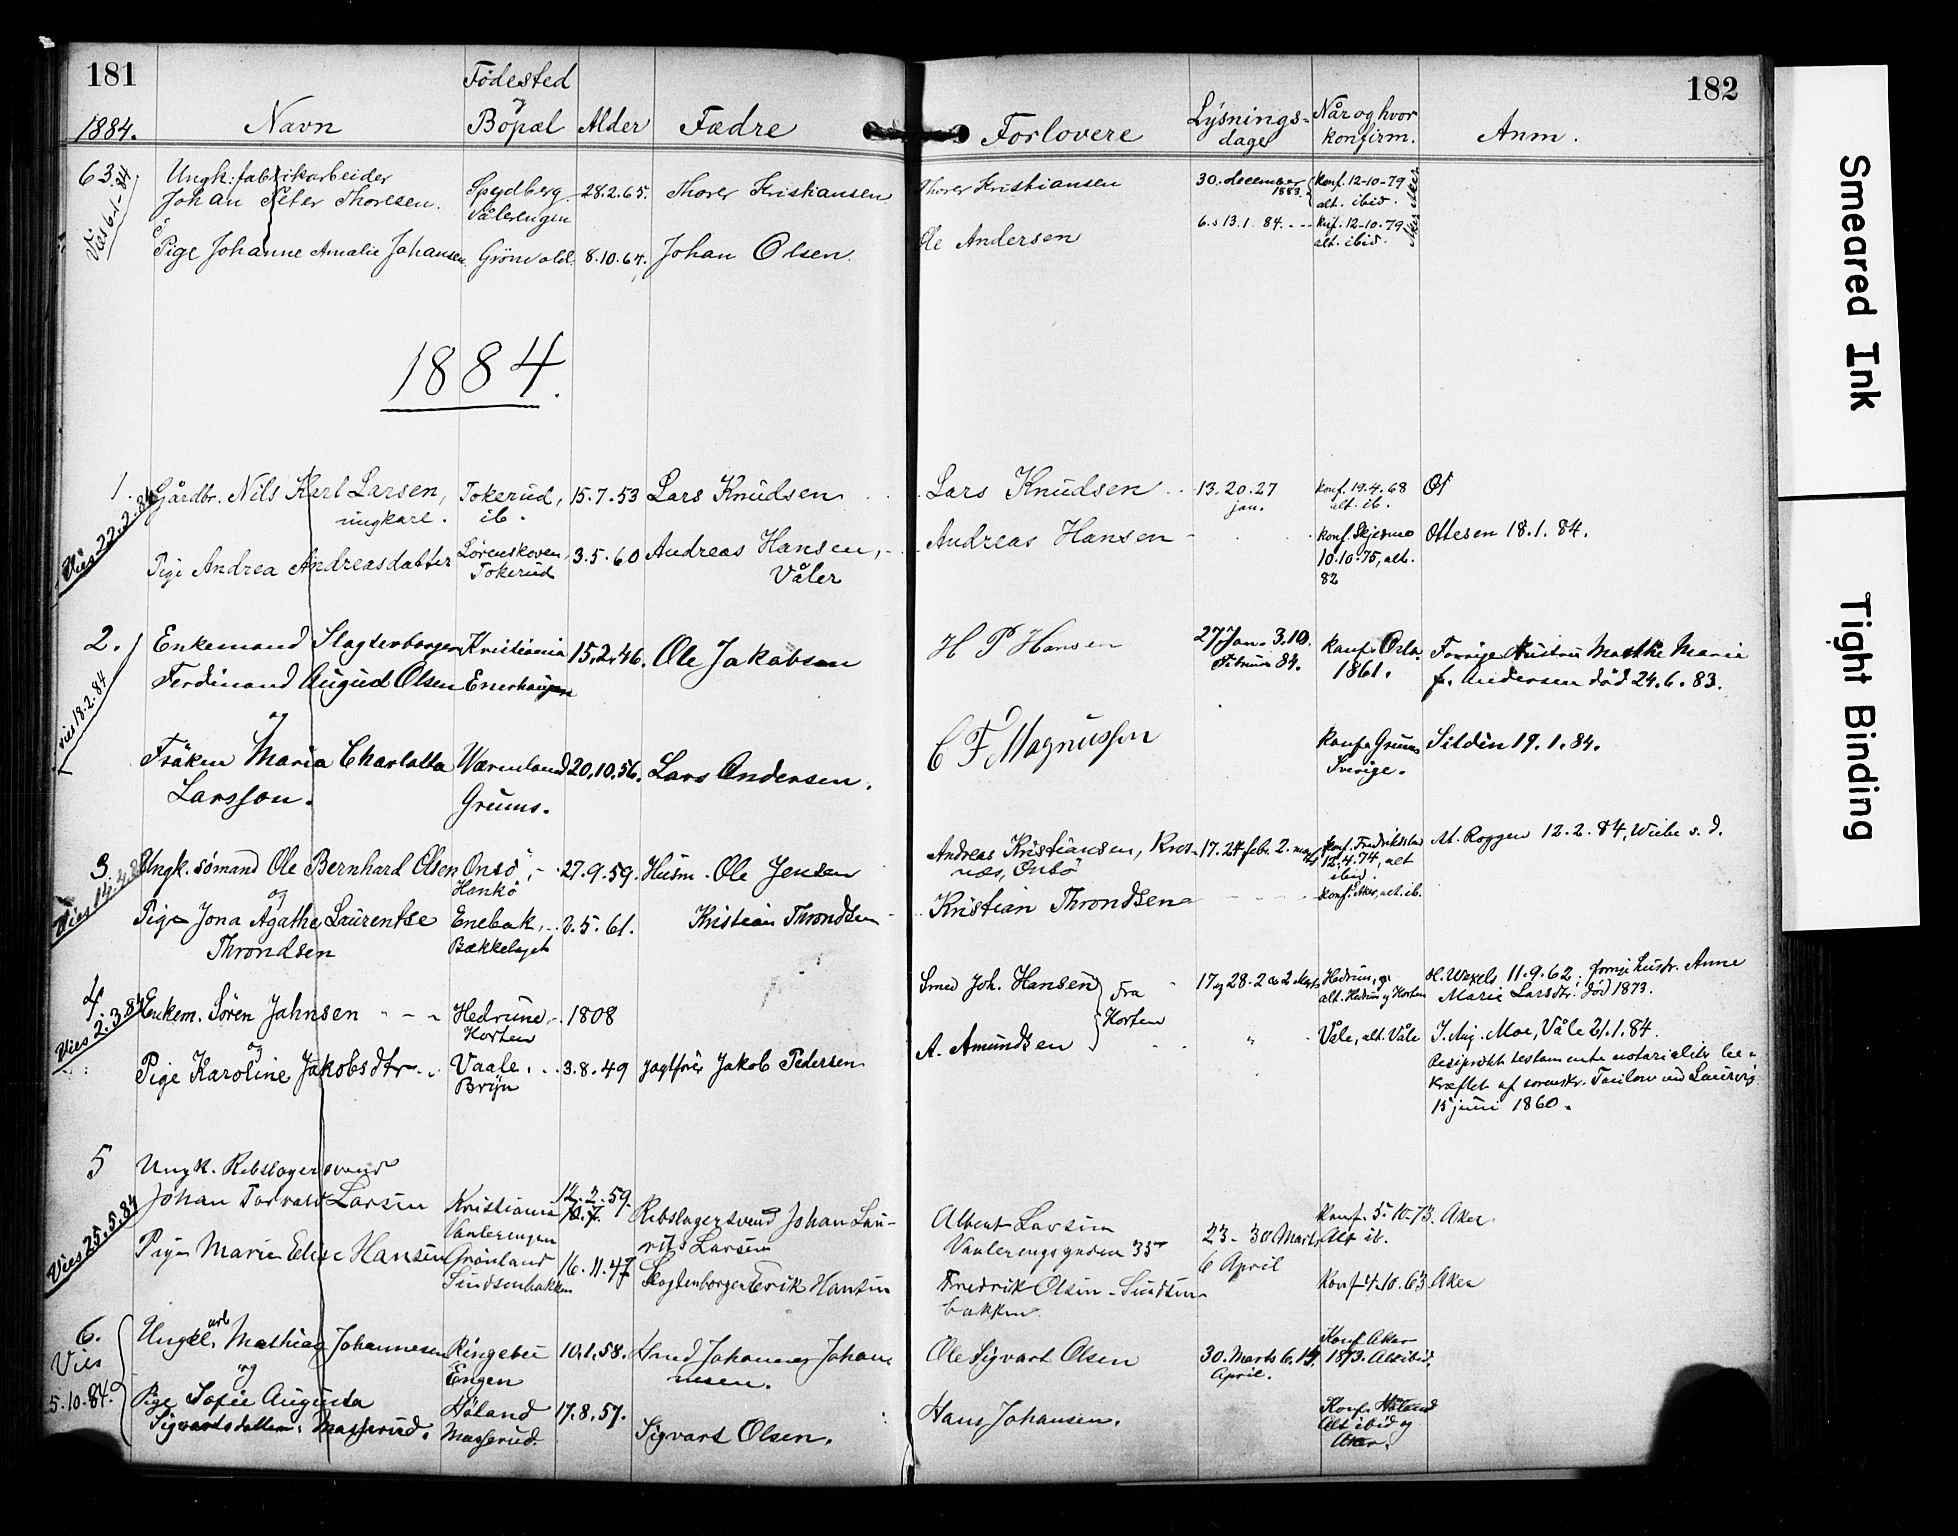 181
1884.
Navn
Fødested
og
Bopæl
Alder
Fædre
63.
Vies 6.1-84
Ungk: fabrikarbeider
Johan Peter Thoresen.
Spydberg
Vålerengen
28.2.65.
Thorer Kristiansen
Pige Johanne Amalie Johansen
Grönvold
8.10.64.
Johan Olsen.
1884.
1.
Vies 22.2.84
Gårdbr. Nils Karl Larsen,
ungkarl.
Tokerud,
ib.
15.7.53
Lars Knudsen
Pige Andrea Andreasdatter
Lørenskoven,
Tokerud
3.5.60
Andreas Hansen,
Våler
2.
vies 18.2.84
Enkemand Slagterborger
Ferdinand August Olsen
Kristiania
Enerhaugen
15.2.46.
Ole Jakobsen
og
Frøken Maria Charlotta
Larsson.
Wærmland
Grums.
20.10.56.
Lars Andersen.
3.
Vies 14.4.84
Ungk. sømand Ole Bernhard Olsen
Onsö,
Hankö
27.9.59.
Husm. Ole Jensen
og
Pige Jona Agathe Laurentse
Throndsen
Enebak,
Bækkelaget
2.5.61.
Kristian Throndsen
4.
Vies 2.3.84
Enkem. Sören Jahnsen
Hedrum,
Horten
1808
og
Pige Karoline Jakobsdtr.
Vaale,
Bryn
3.8.49
Jagtfører Jakob Pedersen
5
Vies 25.5.84
Ungk. Rebslagersvend
Johan Torvald Larsen
Kristiania
Vaalerengen
12.2.59.
Rebslagersvend Johan Lau-
rits Larsen
Pige Marie Elise Hansen
Grønland
Svindsenbakken
16.11.47
Slagterborger Erik Hansen
6.
Vies
5.10.84.
Ungkl. arb. Mathias Johannesen
Ringebu
Engen
10.1.58.
Smed Johannes Johan-
nesen.
og
Pige Sofie Augusta
Sigvartsdatter Masserud.
Høland
Masserud.
17.8.57.
Sigvart Olsen.
182
Forlovere
Lysnings-
dage
Når og hvor
konfirm.
Anm.
Thorer Kristiansen
30. december
1883.
konf. 12-10-79
alt. ibid.
Ole Andersen
6. & 13.1.84.
knf. 12-10-79
alt. ibid.
Lars Knudsen
13. 20. 27
jan.
konf. 19.4.68
alt. ib.
Andreas Hansen
konf. Skjesmo
10.10.75, alt.
82
Ottesen 18.1.84.
H P Hansen
27 Jan. 3. 10.
Februar 84.
Konf. Oslo
1861.
Forrige Hustru Marthe Marie
f. Andersen død 24.6.83.
C F Magnusson
Konf. Grums
Sverige.
Sildèn 19.1.84.
Andreas Kristiansen, Kros-
næs, Onsö
17. 24 febr. 2. marts
konf. Fredrikstad
12.4.74, alt
ibid.
M. Roggen 12.2.84, Wiebe s. d.
Kristian Throndsen
konf. Aker, alt. ib.
Smed Joh. Hansen
Fra
Horten
17 og 28.2 & 2 Marts
Hedrum, og
alt. Hedrum og Horten
H. Wexels 11.9.62. forrige hustr. Anne
Marie Larsdtr. död 1873.
A. Amundsen
Våle, alt. Våle
J. Aug. Moe, Våle 21.1.84.
Resiprokt testamente notarialiter be-
kræftet af sorenskr. Faulow ved Laurvig
15 juni 1860.
Albert Larsen
Vaalerengsgaden 35
23-30 Marts
6 April
Konf. 5-10-73. Aker
Alt ib.
Fredrik Olsen - Svindsen-
bakken
Konf 4.10.63 Aker
Ole Sigvart Olsen
30. Marts 6. 14.
April.
Konf Aker
1873. Alt ibid.
Hans Johansen.
Konf. Høland
Alt ibid og
Aker.
Smeared Ink
Tight Binding